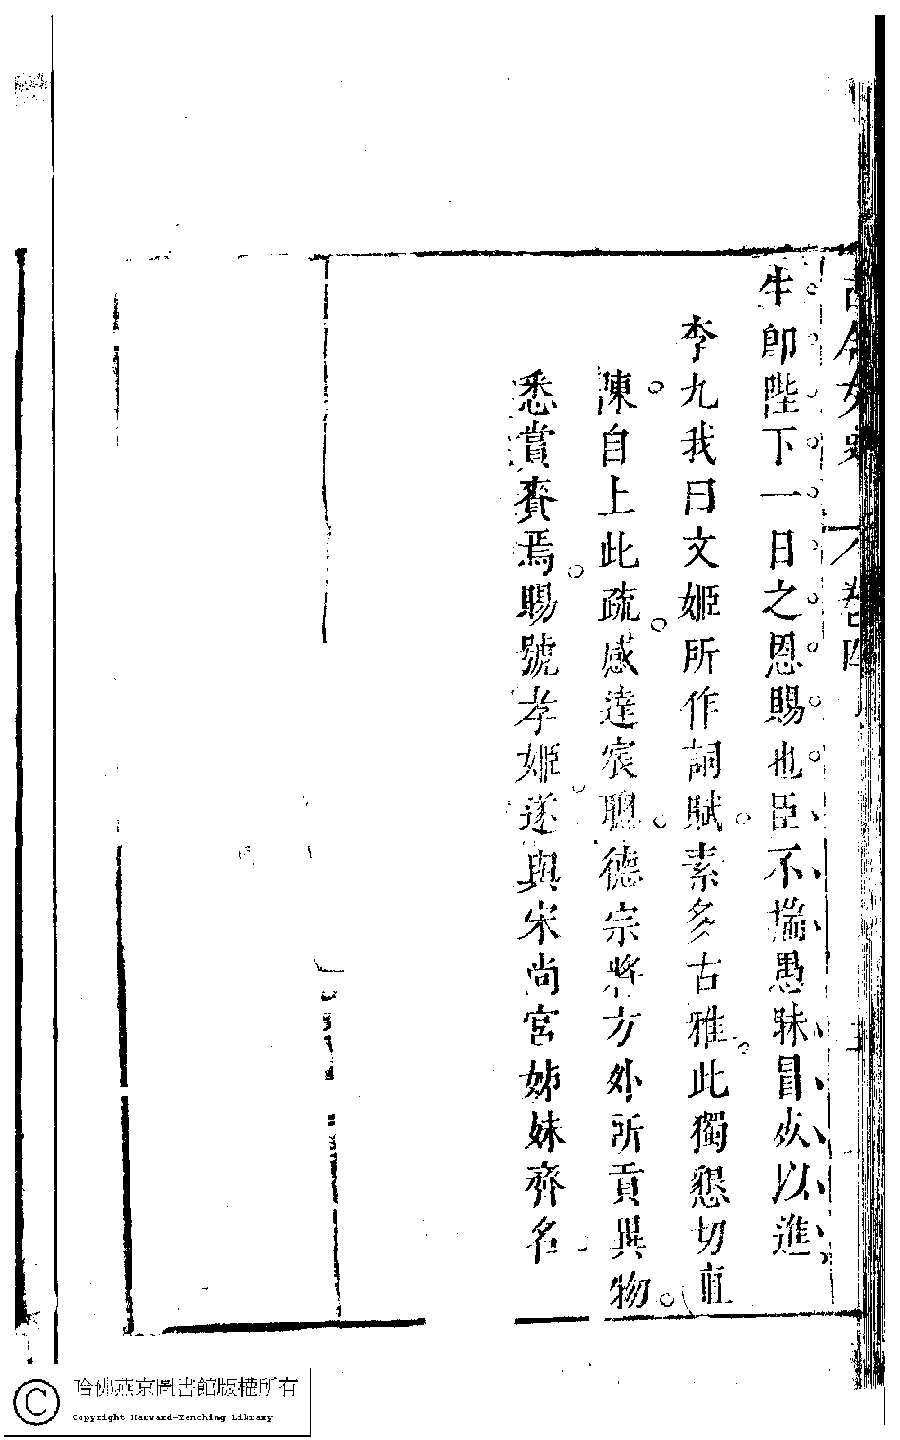 古今女史　卷四
生即陛下一日之恩賜也臣不揣愚昧冒死以進
李九我曰文姬所作詞賦素多古雅此獨懇切直
陳自上此疏感達宸聰德宗將方外所貢異物
悉賞賚焉賜號孝姬遂與宋尚宮姊妹齊名
哈佛燕京圖書館版權所有
Copyright Harvard-Yenching Library